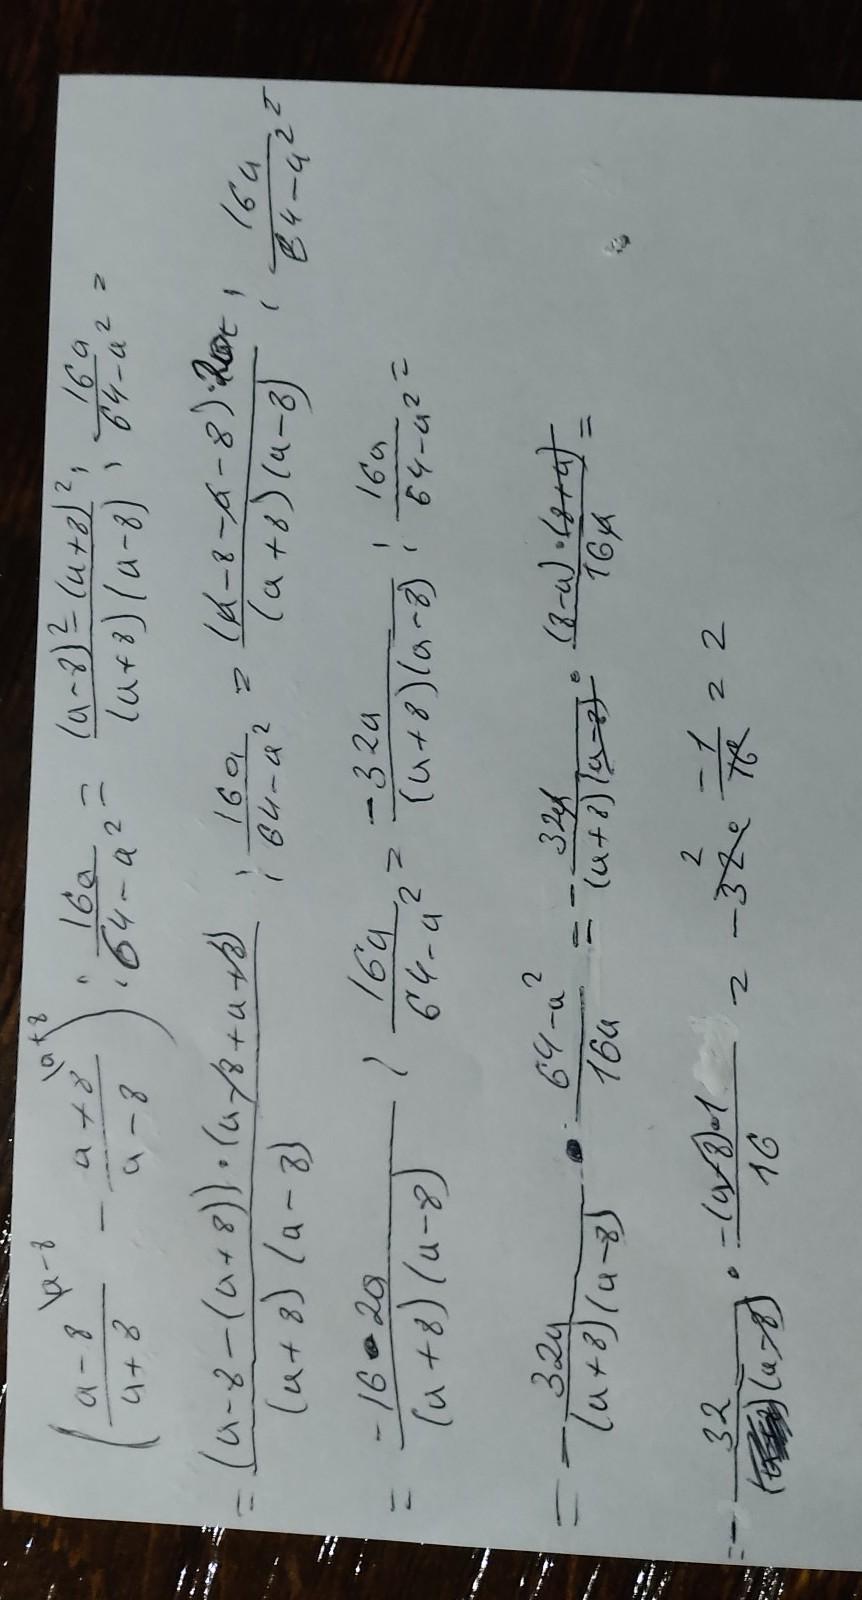 (a-8/a+8 \a-8 - a+8/a-8 \a+8) : 16a/64-a² = (a-8)²-(a+8)²/(a+8)(a-8) : 16a/64-a² =
= (a-8-(a+8))·(a-8+a+8)/(a+8)(a-8) : 16a/64-a² = (a-8-a-8)·2a/(a+8)(a-8) : 16a/64-a² =
= -16·2a/(a+8)(a-8) : 16a/64-a² = -32a/(a+8)(a-8) : 16a/64-a² =
= - 32a/(a+8)(a-8) · 64-a²/16a = - 32a/(a+8)(a-8) · (8-a)·(8+a)/16a =
= - 32/(a-8) · -(a-8)·1/16 = -32 2 · -1/16 = 2